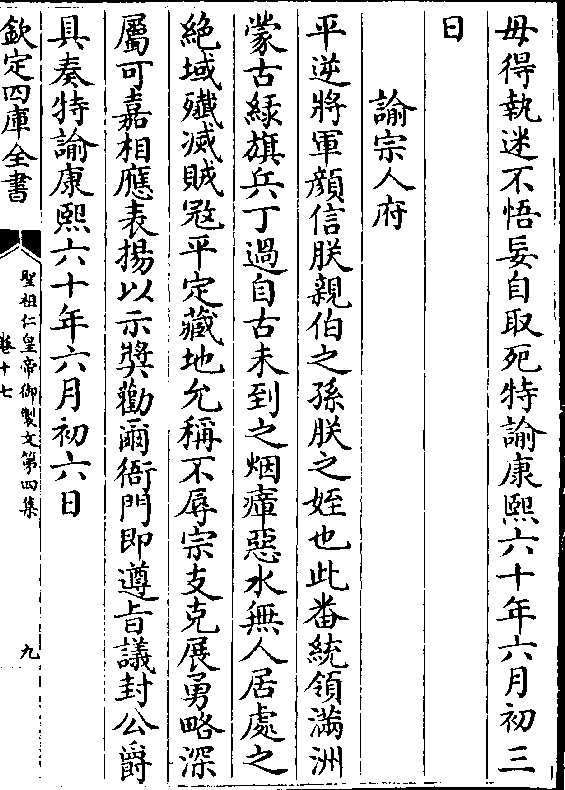 毋得執迷不悟妄自取死特諭康熙六十年六月初三
日
諭宗人府
平逆將軍顏信朕親伯之孫朕之姪也此番統領滿洲
蒙古緑旗兵丁過自古未到之烟瘴惡水無人居處之
絶域殲滅賊冦平定藏地允稱不辱宗支克展勇略深
屬可嘉相應表揚以示獎勸爾衙門即遵旨議封公爵
具奏特諭康熙六十年六月初六日
欽定四庫全書
聖祖仁皇帝御製文第四集
卷十七
九